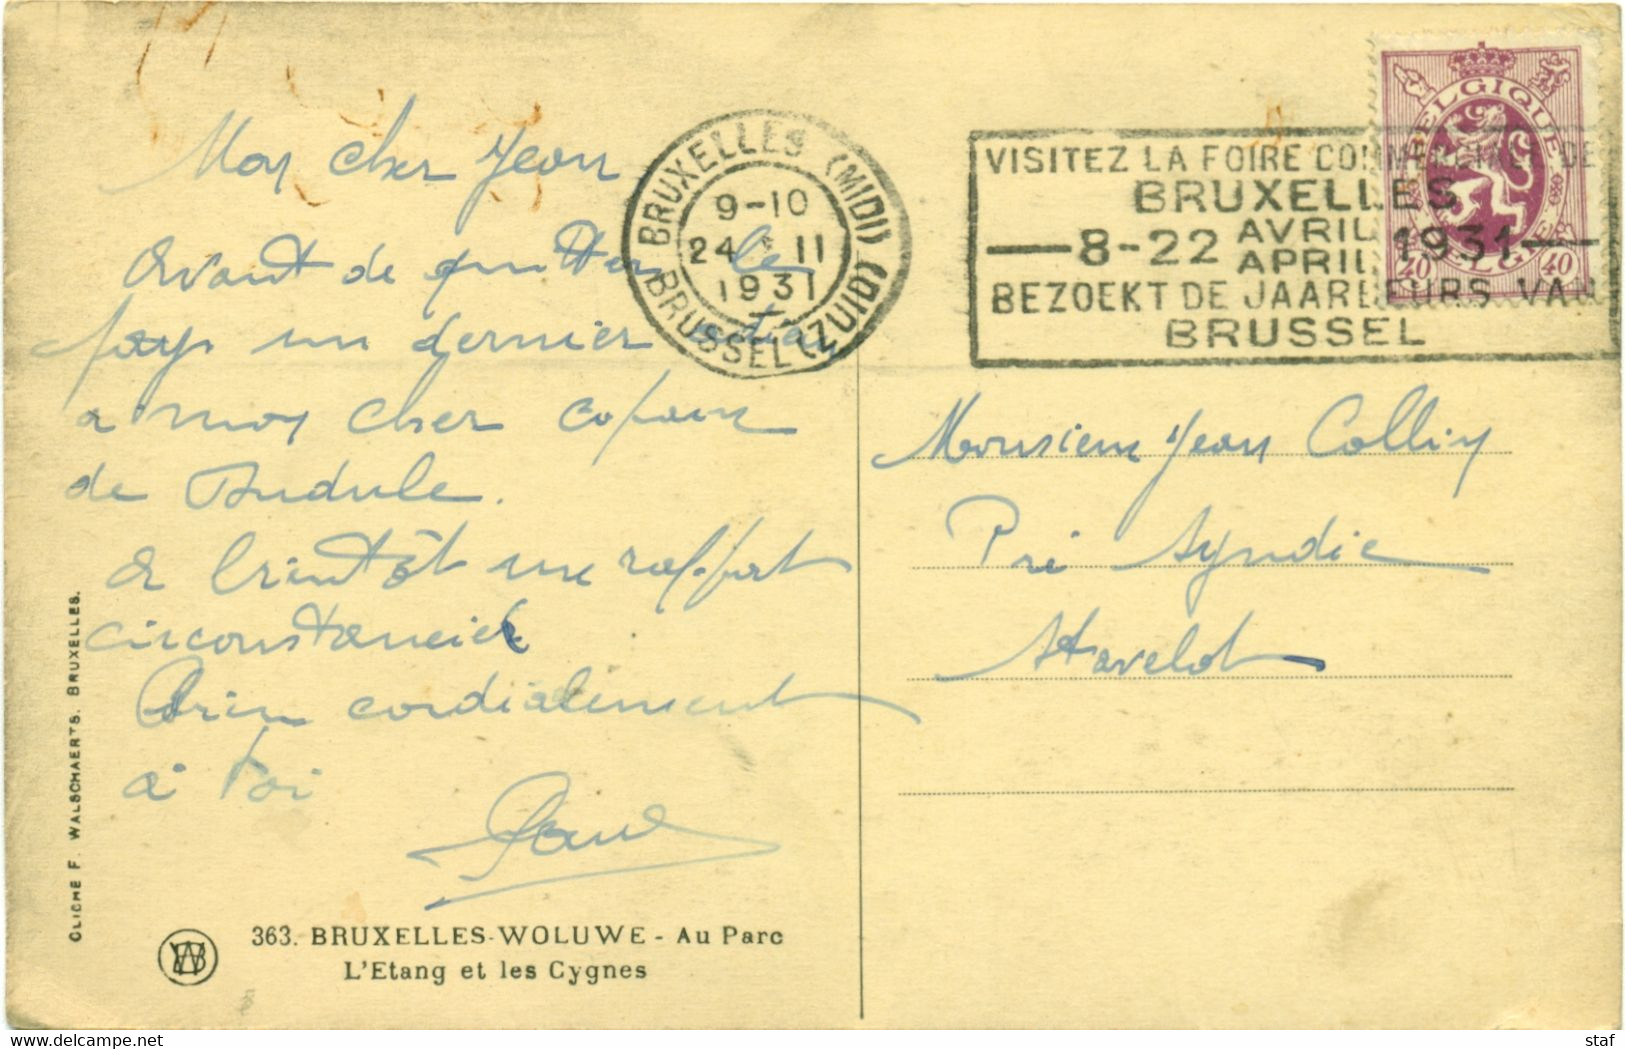 Mon cher Jean
Avant de quitter le
pays un dernier adieu
a mon cher copain
de
A bientôt un rapport
circonstancié
Bien cordialement
à toi
BRUXELLES (MIDI)
9-10
24 II
1931
BRUSSEL (ZUID)
VISITEZ LA FOIRE COMMERCIALE DE
BRUXELLES
8-22 AVRIL APRIL 1931
BEZOEKT DE JAARBEURS VAN
BRUSSEL
BELGIQUE
BELGIË
40 40
Monsieur Jean Collin
Pré Syndic
Stavelot
CLICHÉ F. WALSCHAERTS. BRUXELLES.
363. BRUXELLES-WOLUWE - Au Parc
L'Etang et les Cygnes
staf